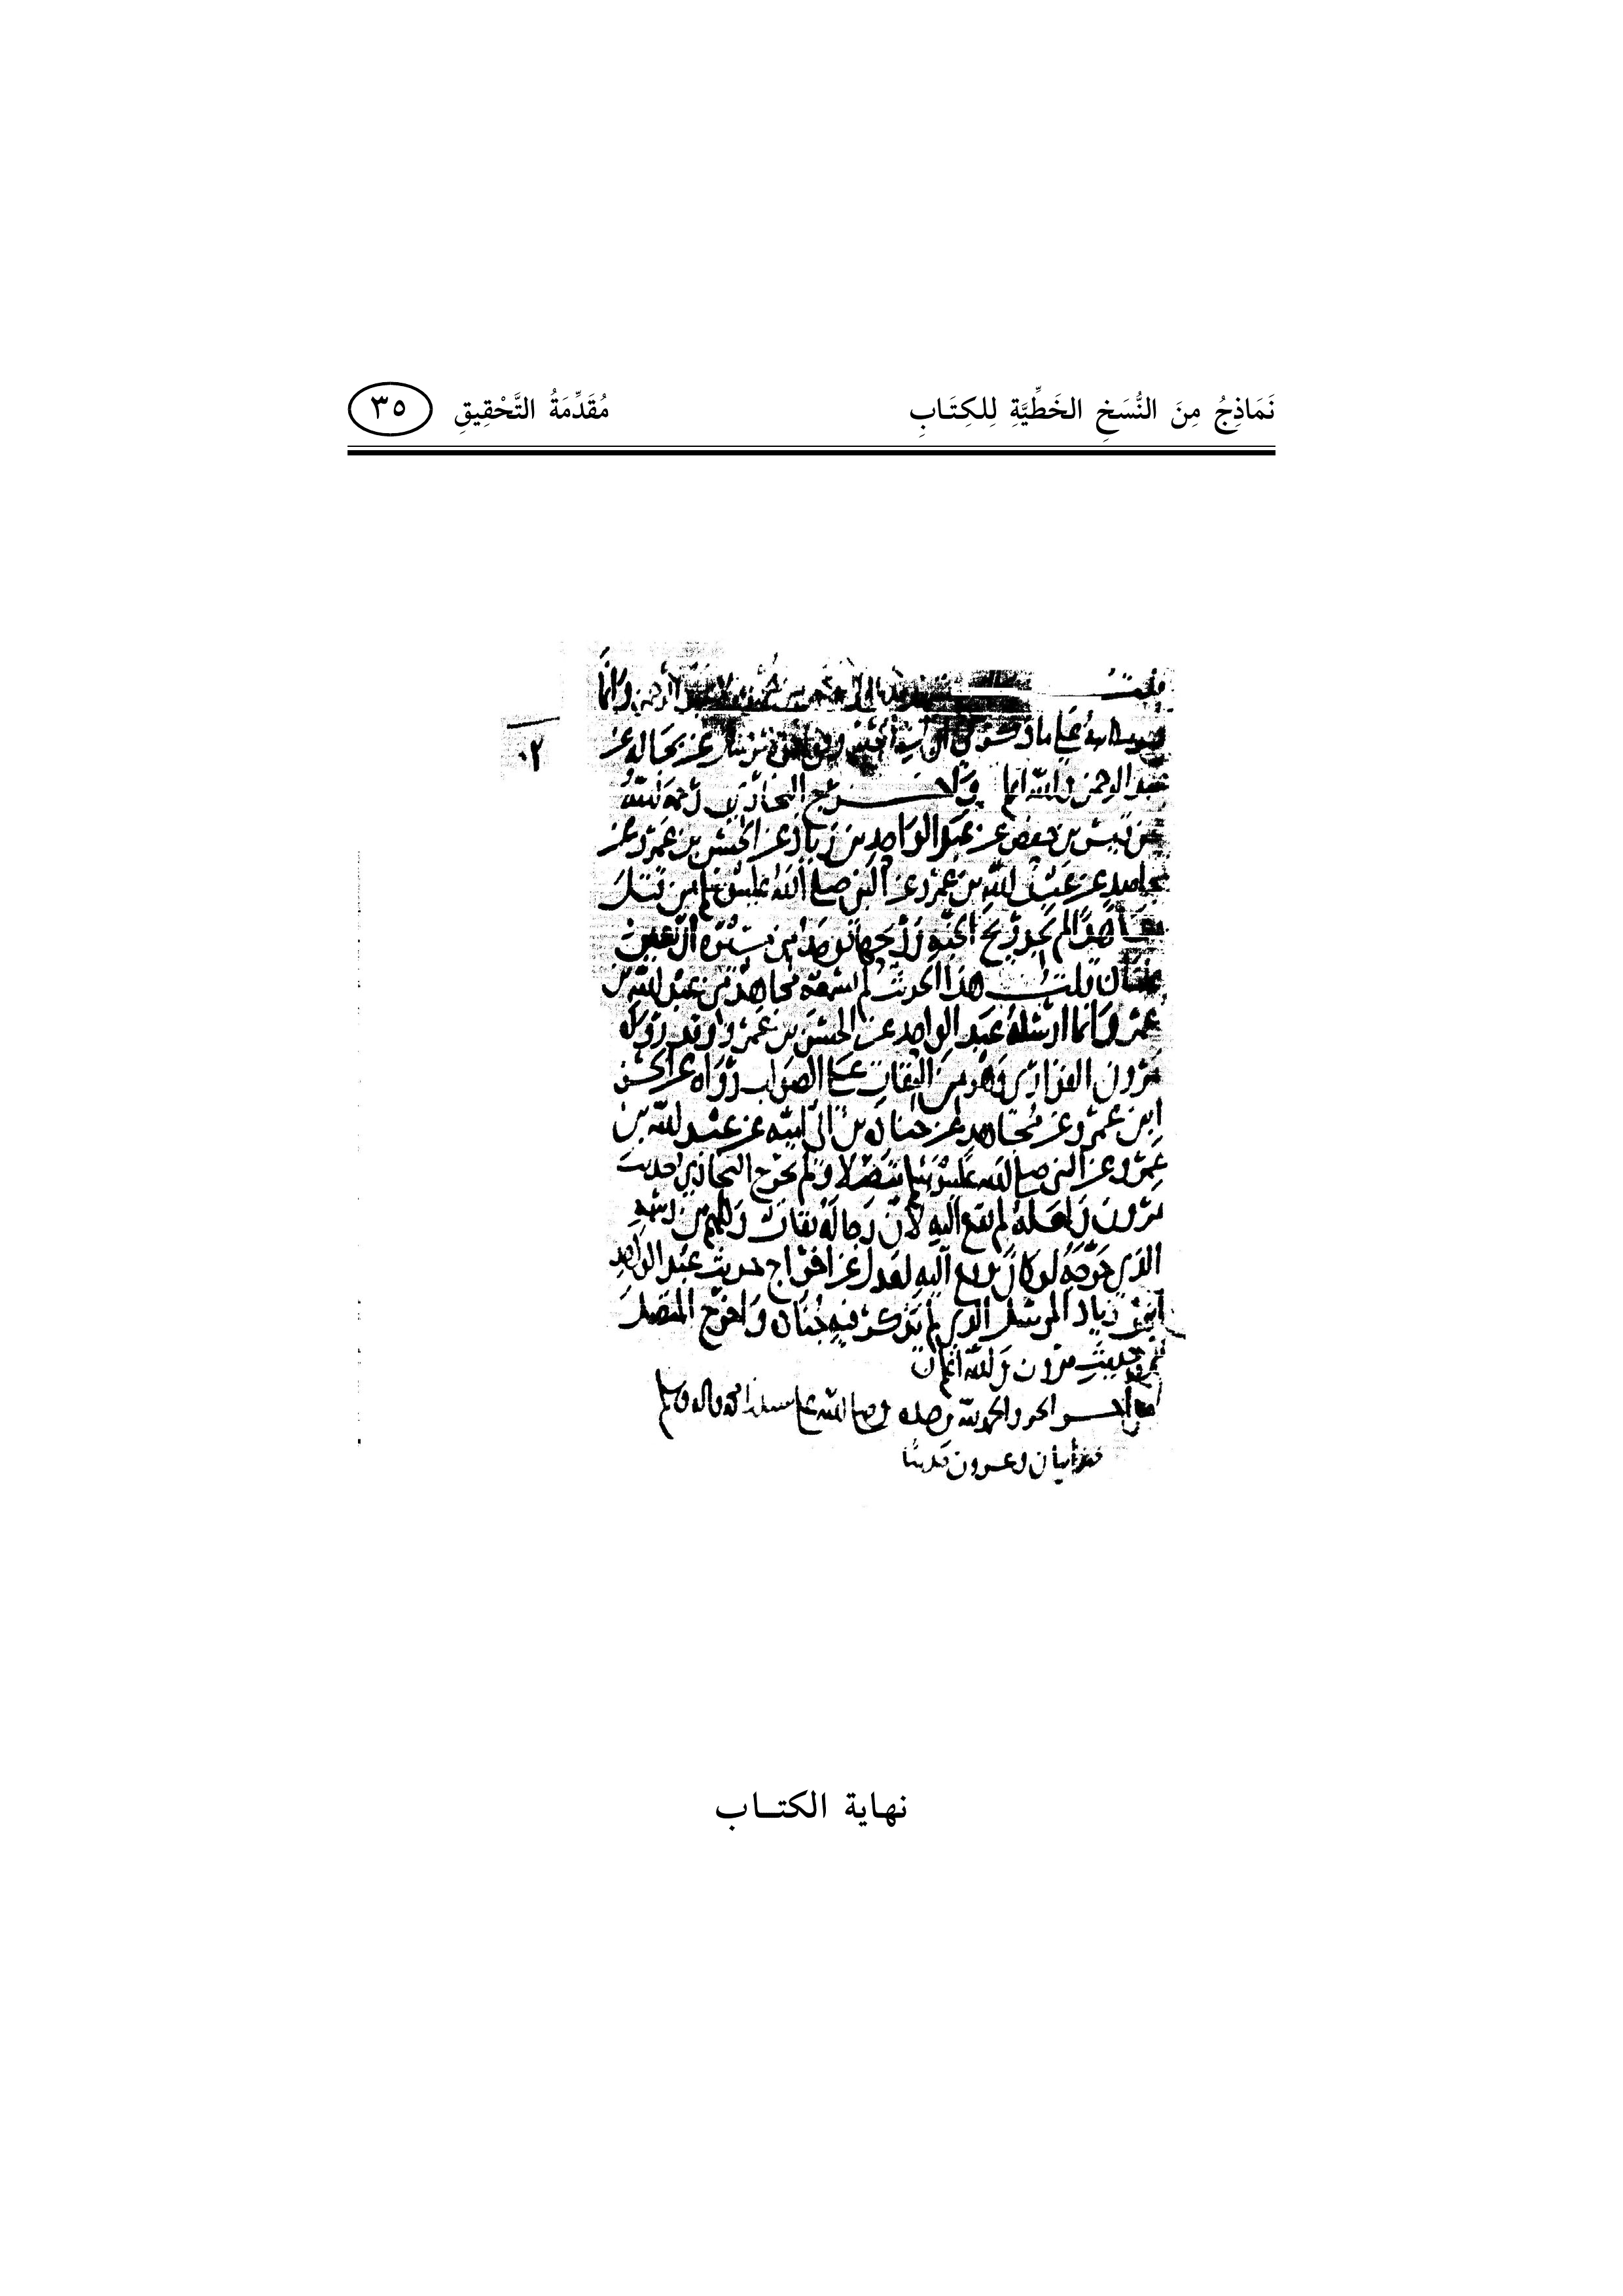 نَمَاذِجُ مِنَ النُّسَخِ الخَطِّيَّةِ لِلكِتَابِ
مُقَدِّمَةُ التَّحْقِيقِ ٣٥
قلت
على ما ذكره عن بجالة عن
عبد الرحمن والله اعلم واخرج البخاري رحمه الله
عن قيس بن حفص عن عبد الواحد بن زياد عن الحسن بن عمرو عن
مجاهد عن عبد الله بن عمرو عن النبي صلى الله عليه وسلم من قتل
معاهدا لم يجد ريح الجنة وان ريحها توجد من مسيرة اربعين
قلت هذا الحديث لم يسمعه مجاهد من عبد الله بن
عمرو وانما ارسله عبد الواحد عن الحسن بن عمرو وقد رواه
مرون الفزاري وهو من الثقات على الصواب رواه عن الحسن
ابن عمرو عن مجاهد عن جنادة بن ابي امية عن عبد الله بن
عمرو عن النبي صلى الله عليه وسلم متصلا ولم يخرج البخاري حديث
مرون ولعله لم يقع اليه لان رجاله ثقات وكلهم من رسمه
الذي خرجه لو كان وقع اليه لعدل عن اخراج حديث عبد الواحد
ابن زياد المرسل الذي لم يذكر فيه جنادة واخرج المتصل
من حديث مرون والله اعلم
والحمد لله وحده وصلى الله على سيدنا محمد واله وسلم
نهاية الكتاب